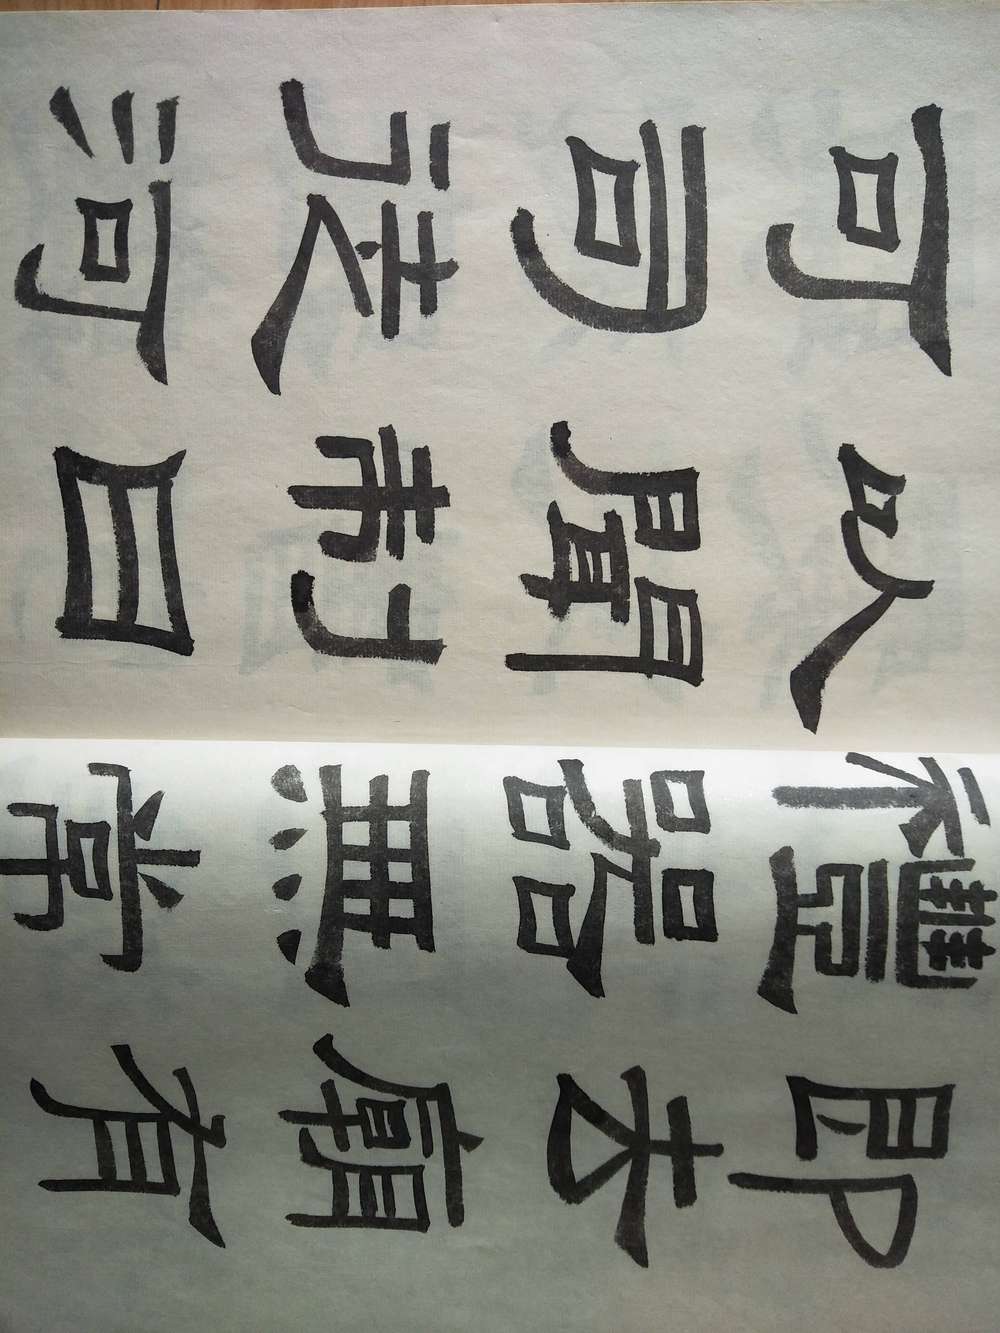 即去廟有
禮器無常
以聞制曰
可司徒河